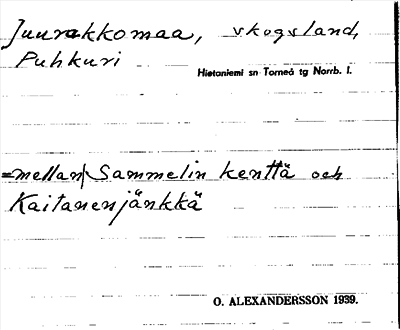 Juurakkomaa, skogsland,
Puhkuri
Hietaniemi sn Torneå tg Norrb. l.
=mellan Sammelin kenttä och
Kaitanenjänkkä
O. ALEXANDERSSON 1939.